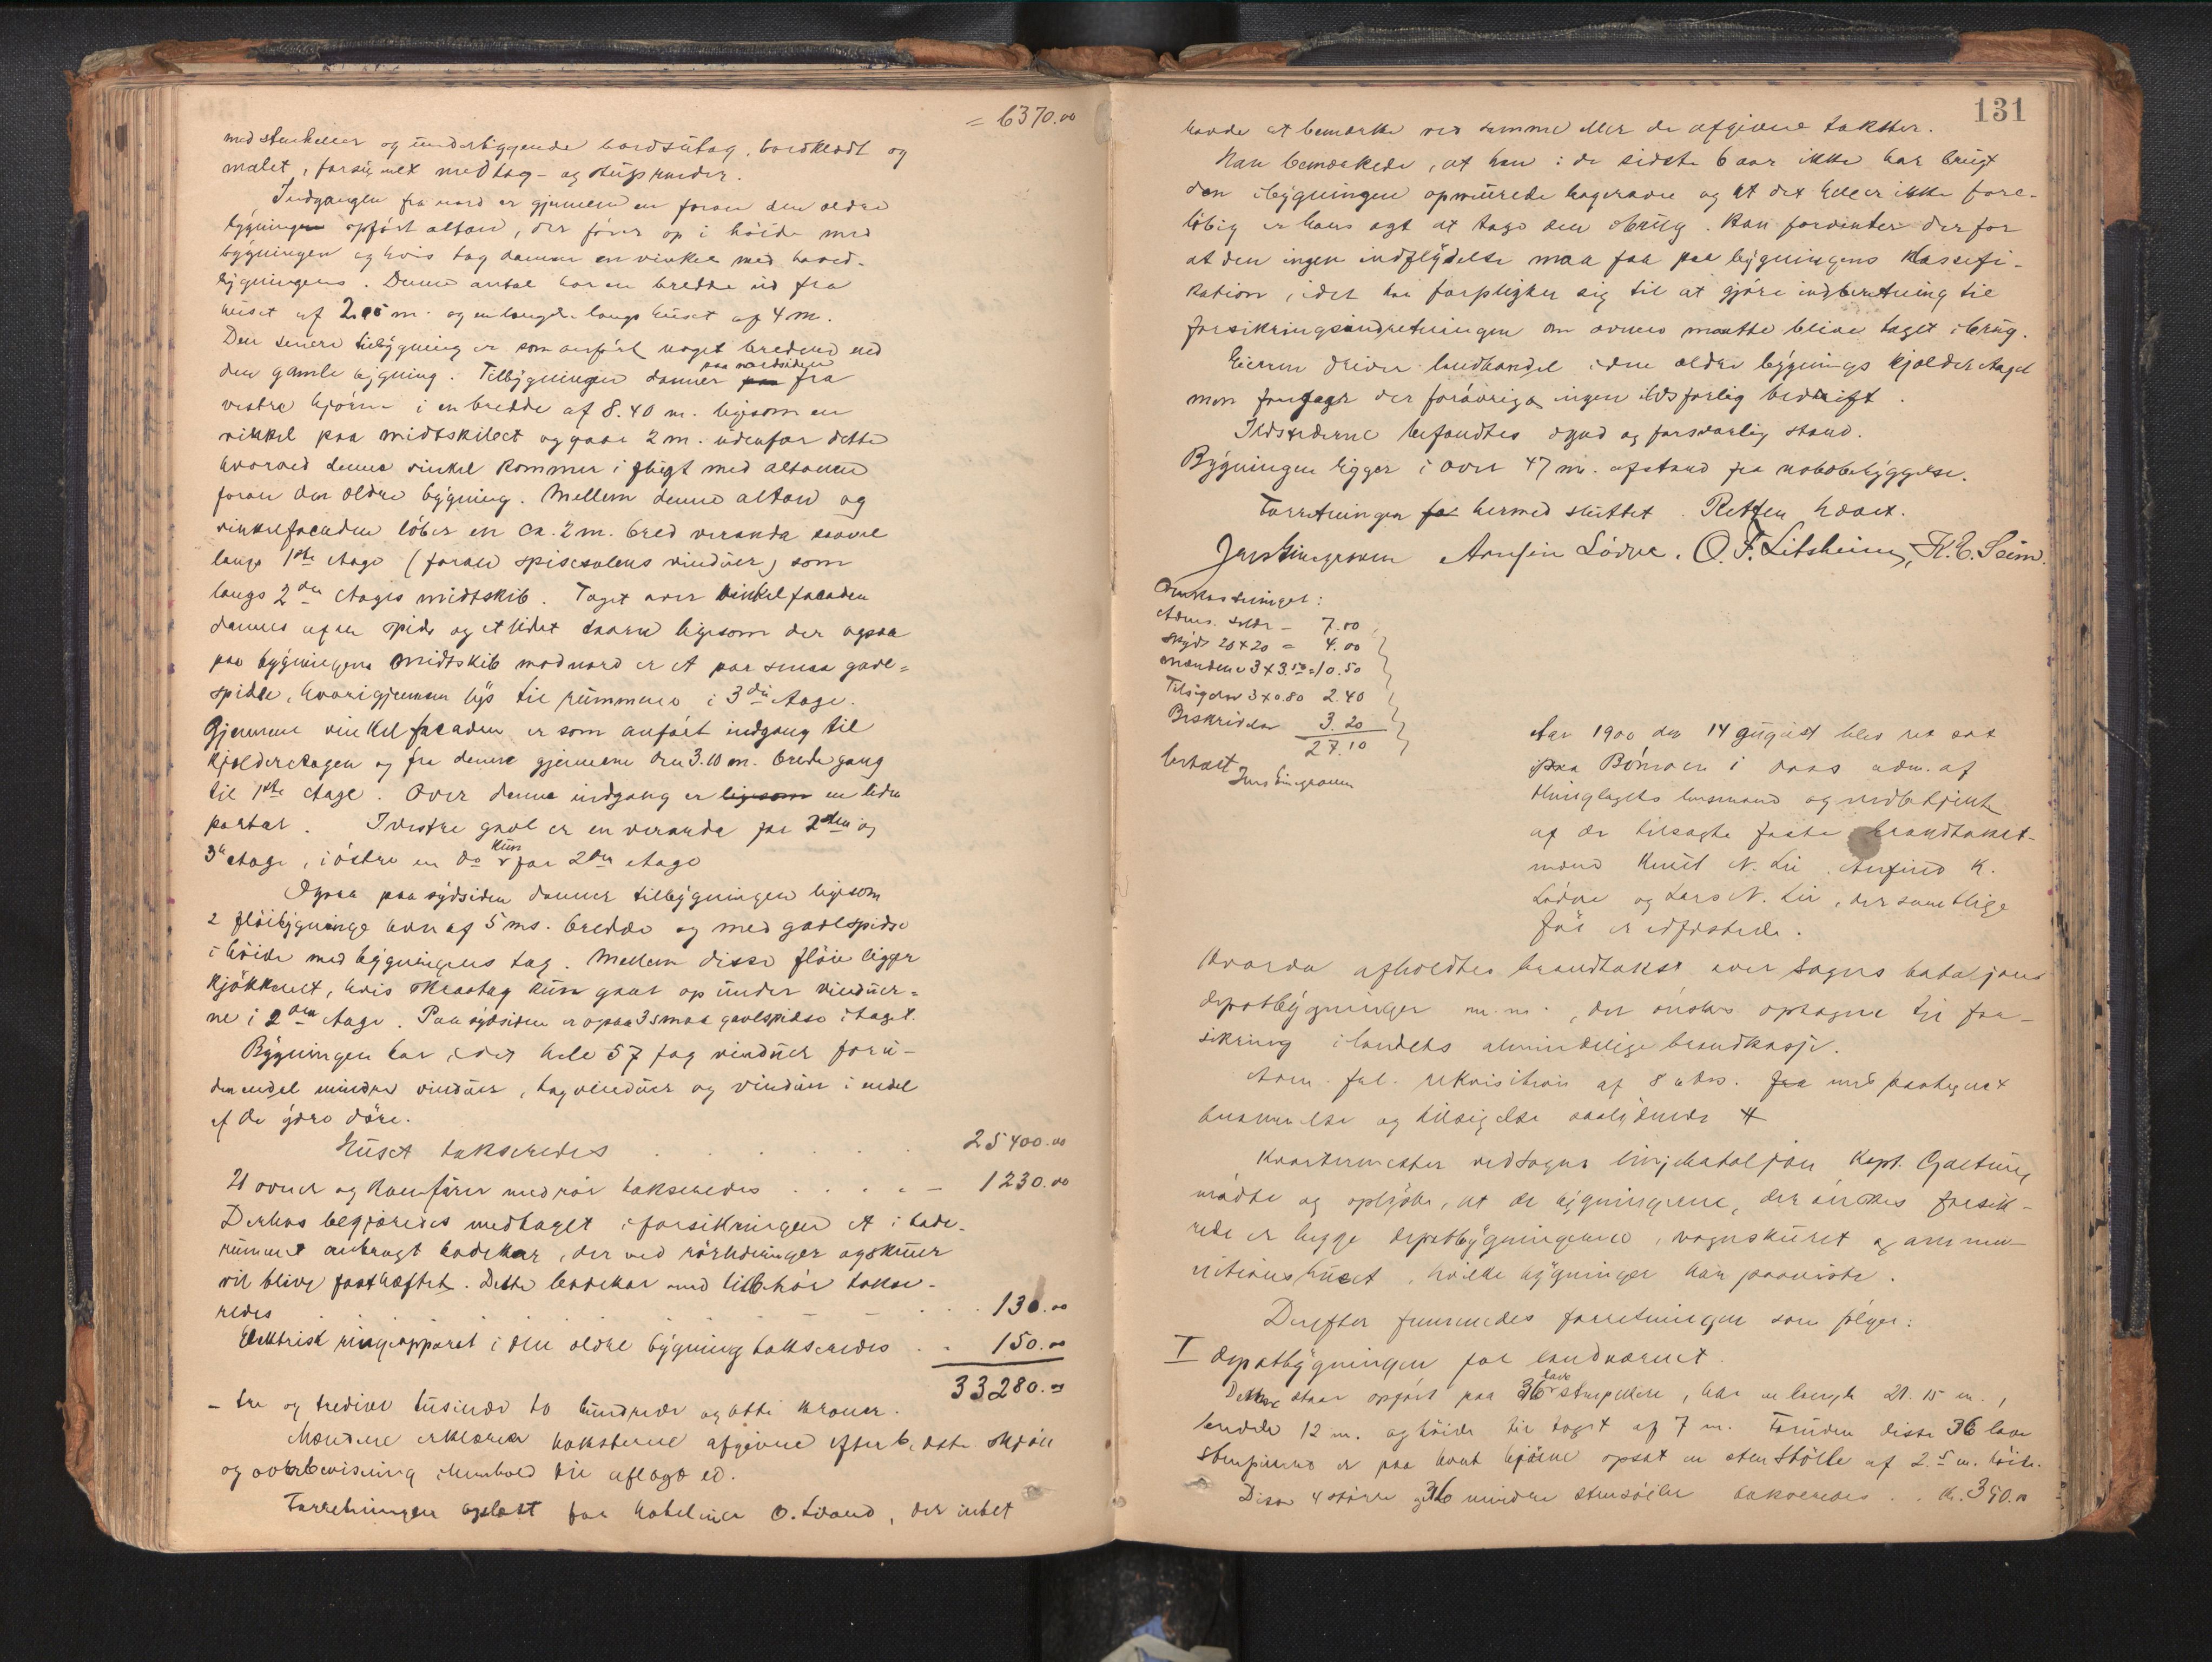 = 6370.00
med stenheller og underliggende bordsutag, bordklædt og
malet, forsynet med tag- og stuprender.
Indgangen fra nord er gjennem en foran den ældre
bygningen opført altan, der fører op i høide med
bygningen og hvis tag danner en vinkel med hoved-
bygningens. Denne antal har en bredde ud fra
huset af 2.05 m. og en længde langs huset af 4 m.
Den senere tilbygning er som anført noget bredere end
den gamle bygning. Tilbygningen danner paa nordsiden fra
vestre hjørne i en bredde af 8.40 m. ligesom en
vinkel paa midtskibet og gaar 2 m. udenfor dette
hvorved denne vinkel kommer i flugt med altanen
foran den ældre bygning. Mellem denne altan og
vinkelfacaden løber en ca. 2 m. bred veranda saavel
langs 1ste Etage (foran spisesalens vinduer) som
langs 2den Etages midtskib. Taget over vinkelfacaden
dannes af en spids og et lidet taarn ligesom der ogsaa
paa bygningens midtskib mod nord er et par smaa gavl=
spidse, hvorigjennem lys til rummene i 3die Etage.
Gjennem vinkelfacaden er som anført indgang til
kjelderetagen og fra denne gjennem den 3.10 m. brede gang
til 1ste Etage. Over denne indgang er ligesom en liden
portal. I vestre gavl er en veranda for 2den og
3die Etage, i østre en do kun for 2den Etage
Ogsaa paa sydsiden danner tilbygningen ligesom
2 fløibygninge hver af 5 ms. bredde og med gavlspidse
i høide med bygningens tag. Mellem disse fløie ligger
kjøkkenet, hvis skraatag kun gaar op under vinduer=
ne i 2den Etage. Paa sydsiden er ogsaa 3 smaa gavlspidse i taget.
Bygningen har i det hele 57 fag vinduer foru-
den endel mindre vinduer, tagvinduer og vinduer i endel
af de ydre døre.
Huset takseredes . . . . . 25400.00
21 ovner og komfurer med rør takseredes . . . . – 1230.00
Derhos begjæredes medtaget i forsikringen et i bade-
rummet anbragt badekar, der ved rørledninger og skruer
vil blive fasthæftet. Dette badekar med tilbehør takse-
redes – – . . . 130.00
Elektrisk ringeapparat i den ældre bygning takseredes . . 150.00
33280.00
– tre og tredive tusinde to hundrede og otti kroner.
Mændene erklærer taksterne afgivne efter bedste skjøn
og overbevisning i henhold til aflagt ed.
Forretningen oplæst for hoteleier O. Liland, der intet
131
havde at bemærke ved samme eller de afgivne takster.
Han bemærkede, at han i de sidste 6 aar ikke har brugt
den i bygningen opmurede bagerovn og at det heller ikke fore-
løbig er hans agt at tage den i brug. Han forventer derfor
at den ingen indflydelse maa faa paa bygningens klassifi-
kation, idet han forpligter sig til at gjøre indberetning til
forsikringsindretningen om ovnen maatte blive taget i brug.
Eieren driver landhandel i den ældre bygnings kjelderetage
men foregaar der forøvrigt ingen ildsfarlig bedrift.
Ildstederne befandtes i god og forsvarlig stand.
Bygningen ligger i over 47 m. afstand fra nabobebyggelse.
Forretningen hermed sluttet. Retten hævet.
Arnfin Lødve. O. T. Litsheim, K. E. Seim.
Omkostninger:
Adms. sold – 7.00
Skyds 20 x 20 = 4.00
Mændene 3 x 3.50 = 10.50
Tilsigelse 3 x 0.80 2.40
Beskrivelse 3.20
27.10
Aar 1900 den 14 august blev ret sat
paa Bømoen i Voss adm. af
thinglagets lensmand og medbetjent
af de tilsagte faste brandtakst-
mænd Knut N. Lie, Anfind K.
Lødve og Lars N. Lie, der samtlige
før er edfæstede.
Hvorda afholdtes brandtakst over Sogns bataljons
depotbygninger m.m., der ønskes optagne til for-
sikring i landets almindelige brandkasse.
Adm. frl. rekvisition af 8 ds. med paategnet
berammelse og tilsigelse saalydende #
Kvartermester ved Sogns linjebataljon kapt. Gjetung
mødte og oplyste, at de bygningerne, der ønskes forsik-
rede er begge depotbygningerne, vognskuret og ammu-
nitionshuset, hvilke bygninger han paaviste.
Derefter fremmedes forretningen som følger:
I Depotbygningen for landværnet.
Denne staar opført paa 36 lave stenpillere, har en længde 21.15 m.,
bredde 12 m. og høide til taget af 7 m. Foruden disse 36 lave
stenpillere er paa hvert hjørne opsat en stenstøtte af 2.5 m. høide.
Disse 4 større og 36 mindre stensøiler takseredes . . Kr. 390.00